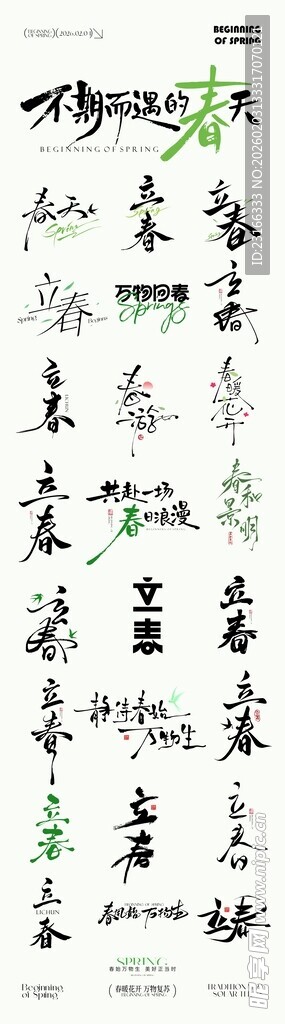 BEGINNING OF SPRING
2026.02.03
BEGINNING
OF SPRING
不期而遇的春天
BEGINNING OF SPRING
春天
Spring
立春
Spring
立春
立春
Spring
Begins
万物回春
Springs
立春
立春
LICHUN
春游
春暖花开
立春
共赴一场
春日浪漫
春和景明
立春
立春
立春
立春
静待春始
万物生
立春
立春
立春
立春
立春
LICHUN
春风始 万物生
立春
SPRING
春始万物生 美好正当时
Beginning
of Spring
春暖花开 万物复苏
BEGINNING OF SPRING
TRADITION
SOLAR TE
昵图网 www.nipic.cn